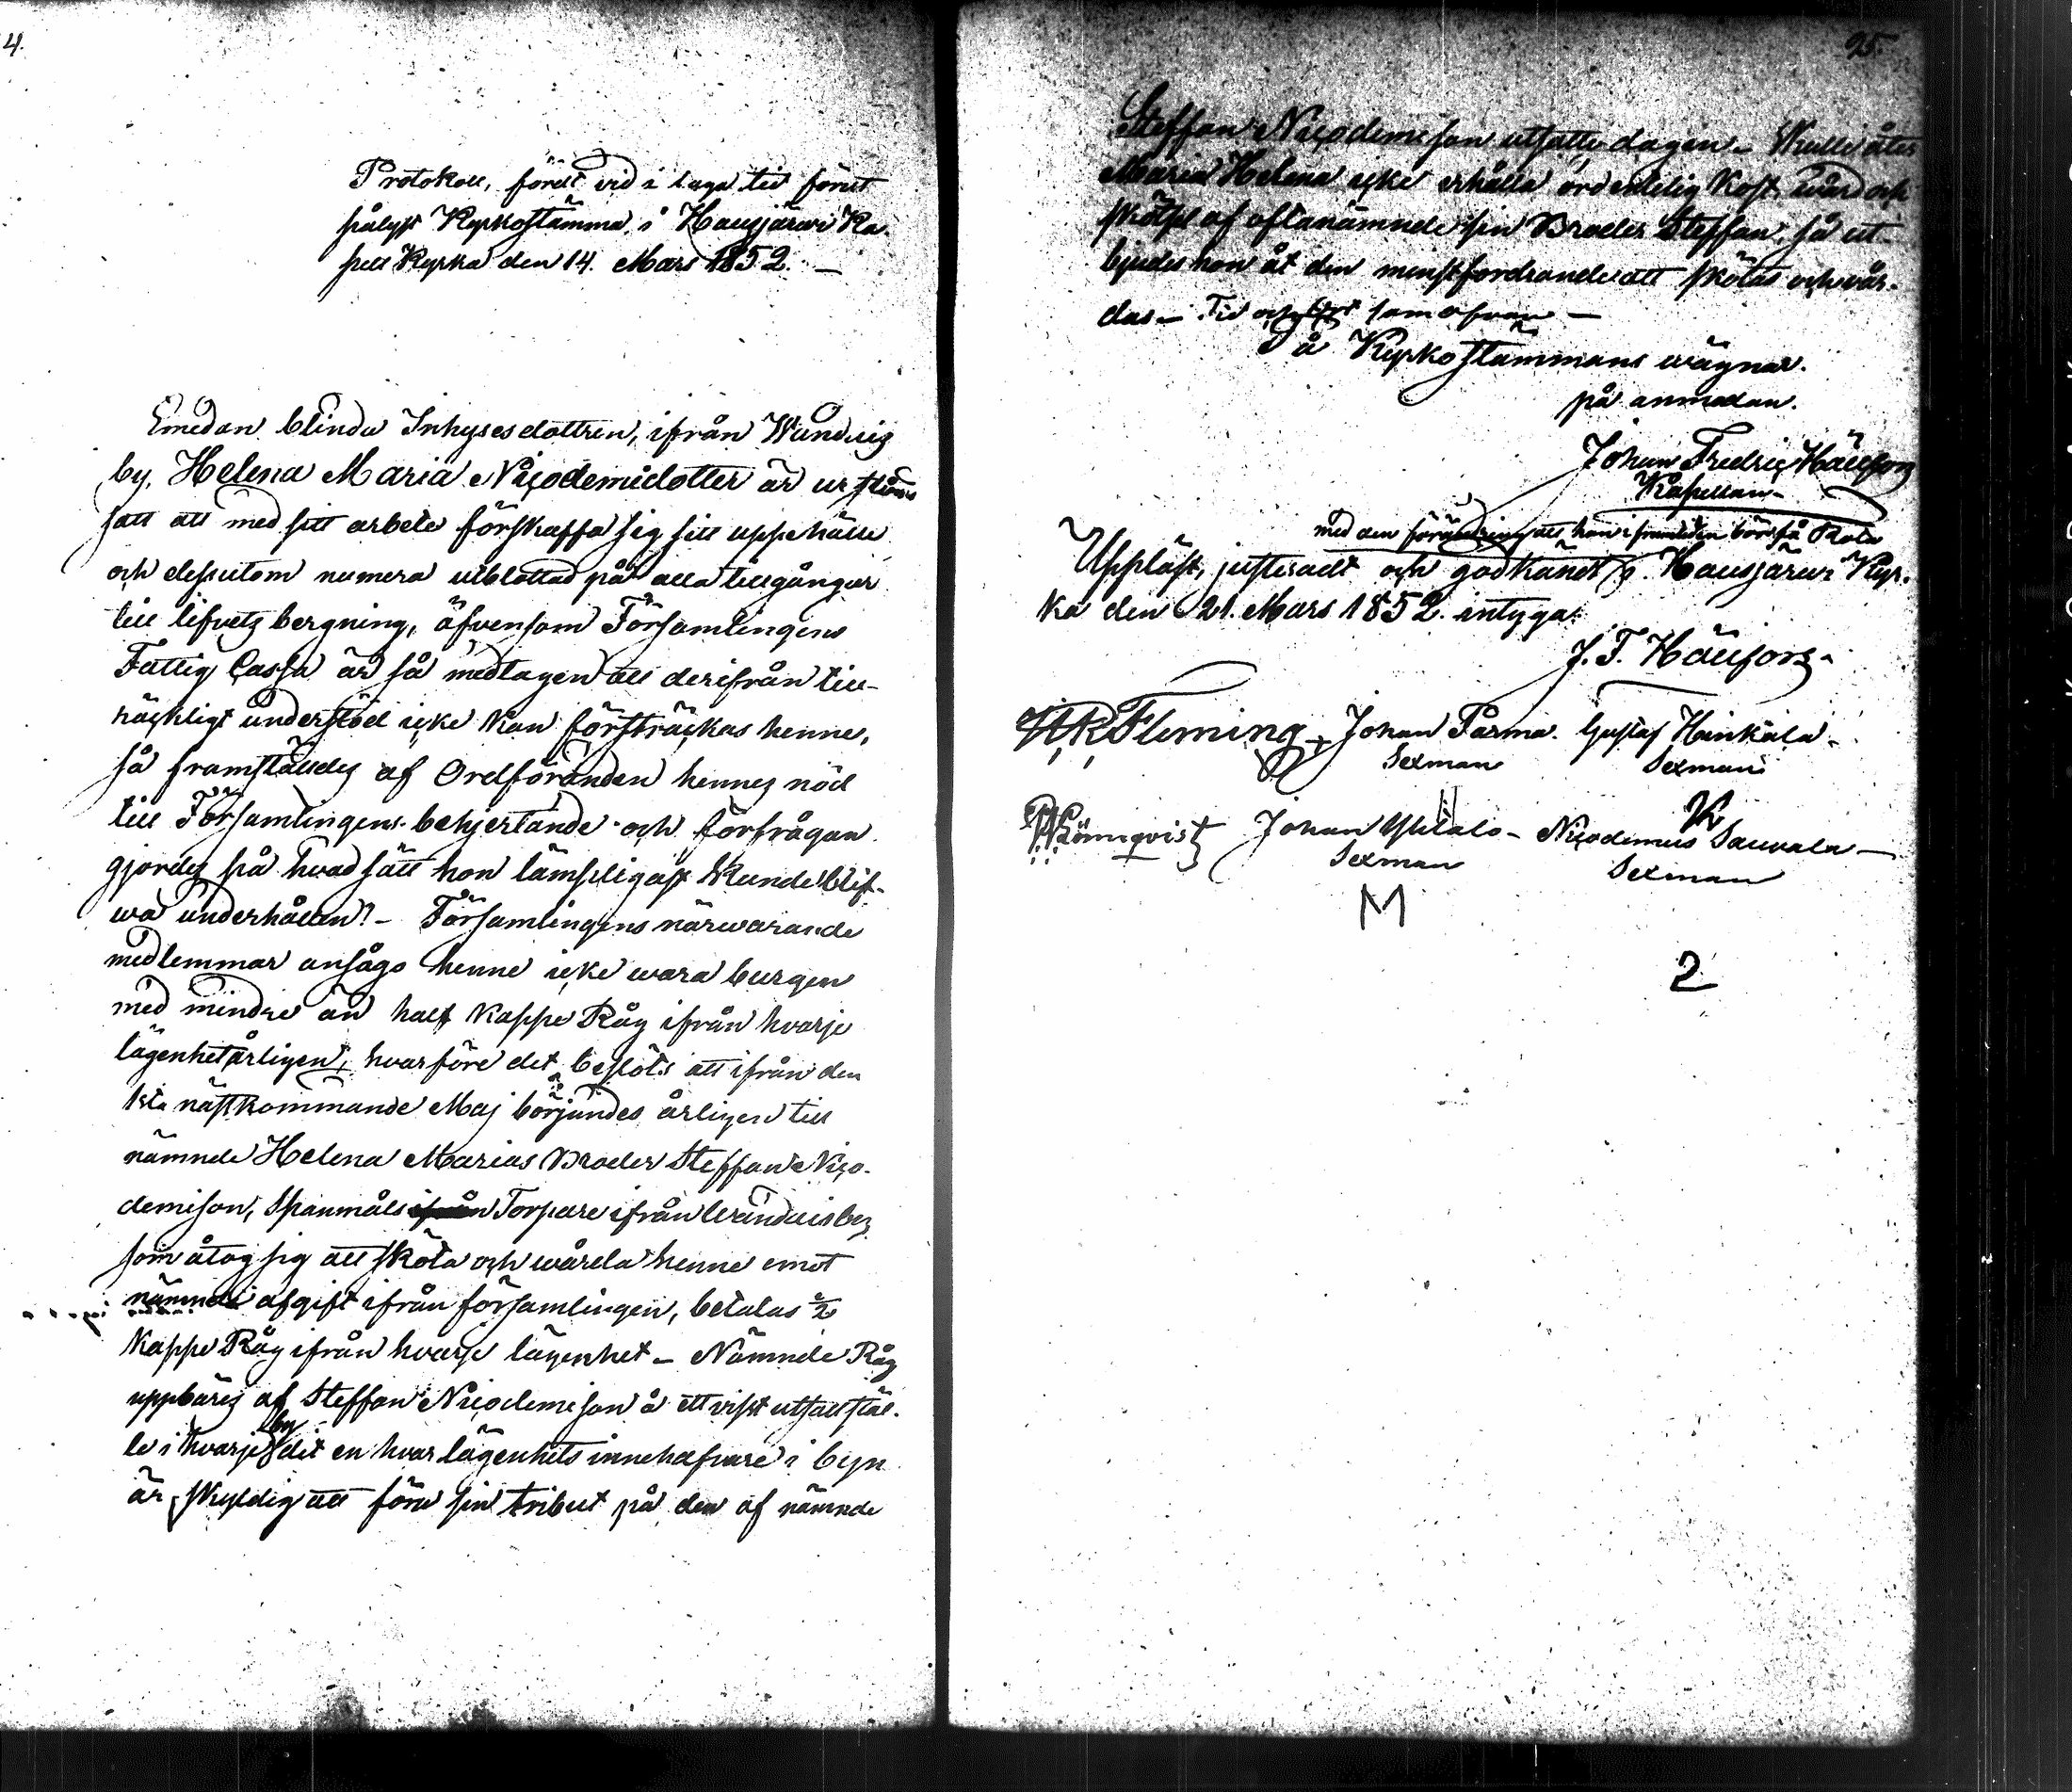 4.
Protokoll, fördt vid i laga tid förut
pålyst Kyrkostämma i Hausjärwi Ka-
pell Kyrka den 14. Mars 1852. —
Emedan blinda Inhysesdottren, ifrån
by, Helena Maria Nicodemidotter är ur stånd
satt att med sitt arbete förskaffa sig sitt uppehälle
och dessutom numera utblottad på alla tillgångar
till lifvets bergning, äfvensom Församlingens
Fattig Cassa är så medtagen att derifrån till-
räckligt understöd icke kan försträckas henne,
så framställdes af Ordföranden hennes nöd
till Församlingens behjertande och förfrågan
gjordes på hvad sätt hon lämpligast kunde blif-
wa underhållen? – Församlingens närwarande
medlemmar ansågo henne icke wara burgen
med mindre än half kappe Råg ifrån hvarje
lägenhet årligen, hvarföre det beslöts att ifrån den
1sta nästkommande Maj börjandes årligen till
nämnde Helena Marias Broder Steffan Nico-
demison, Spanmåls ifrån Torpare ifrån
som åtog sig att sköta och wårda henne emot
nämnde afgift ifrån församlingen, betalas 1/2
Kappe Råg ifrån hvarje lägenhet – Nämnde Råg
uppbäres af Steffan Nicodemison å ett visst utsatt stäl-
le i hvarje by dit en hvar lägenhets innehafvare i byn
är skyldig att föra sin tribut på den af nämnde
95.
Steffan Nicodemison utsatte dagen – Skulle åter
Maria Helena icke erhålla ordentelig kost, wård och
skötsel af oftanämnde sin Broder Steffan, så ut-
bjudes hon åt den minstfordrande att skötas och vår-
das – Tid och ort som ofvan –
å Kyrkostämmans wägnar.
på anmodan.
Johan Fredric
Kapellan
med den förändring att hon i framtiden bör få
Uppläst, justeradt och godkändt i Hausjärwi Kyr-
ka den 21. Mars 1852. intyga:
J. F.
Fleming
Johan Parma. Gustaf Hinkala
Sexman Sexman
Lönnqvist Johan Nicodemus Sauvala
Sexman Sexman
M
2